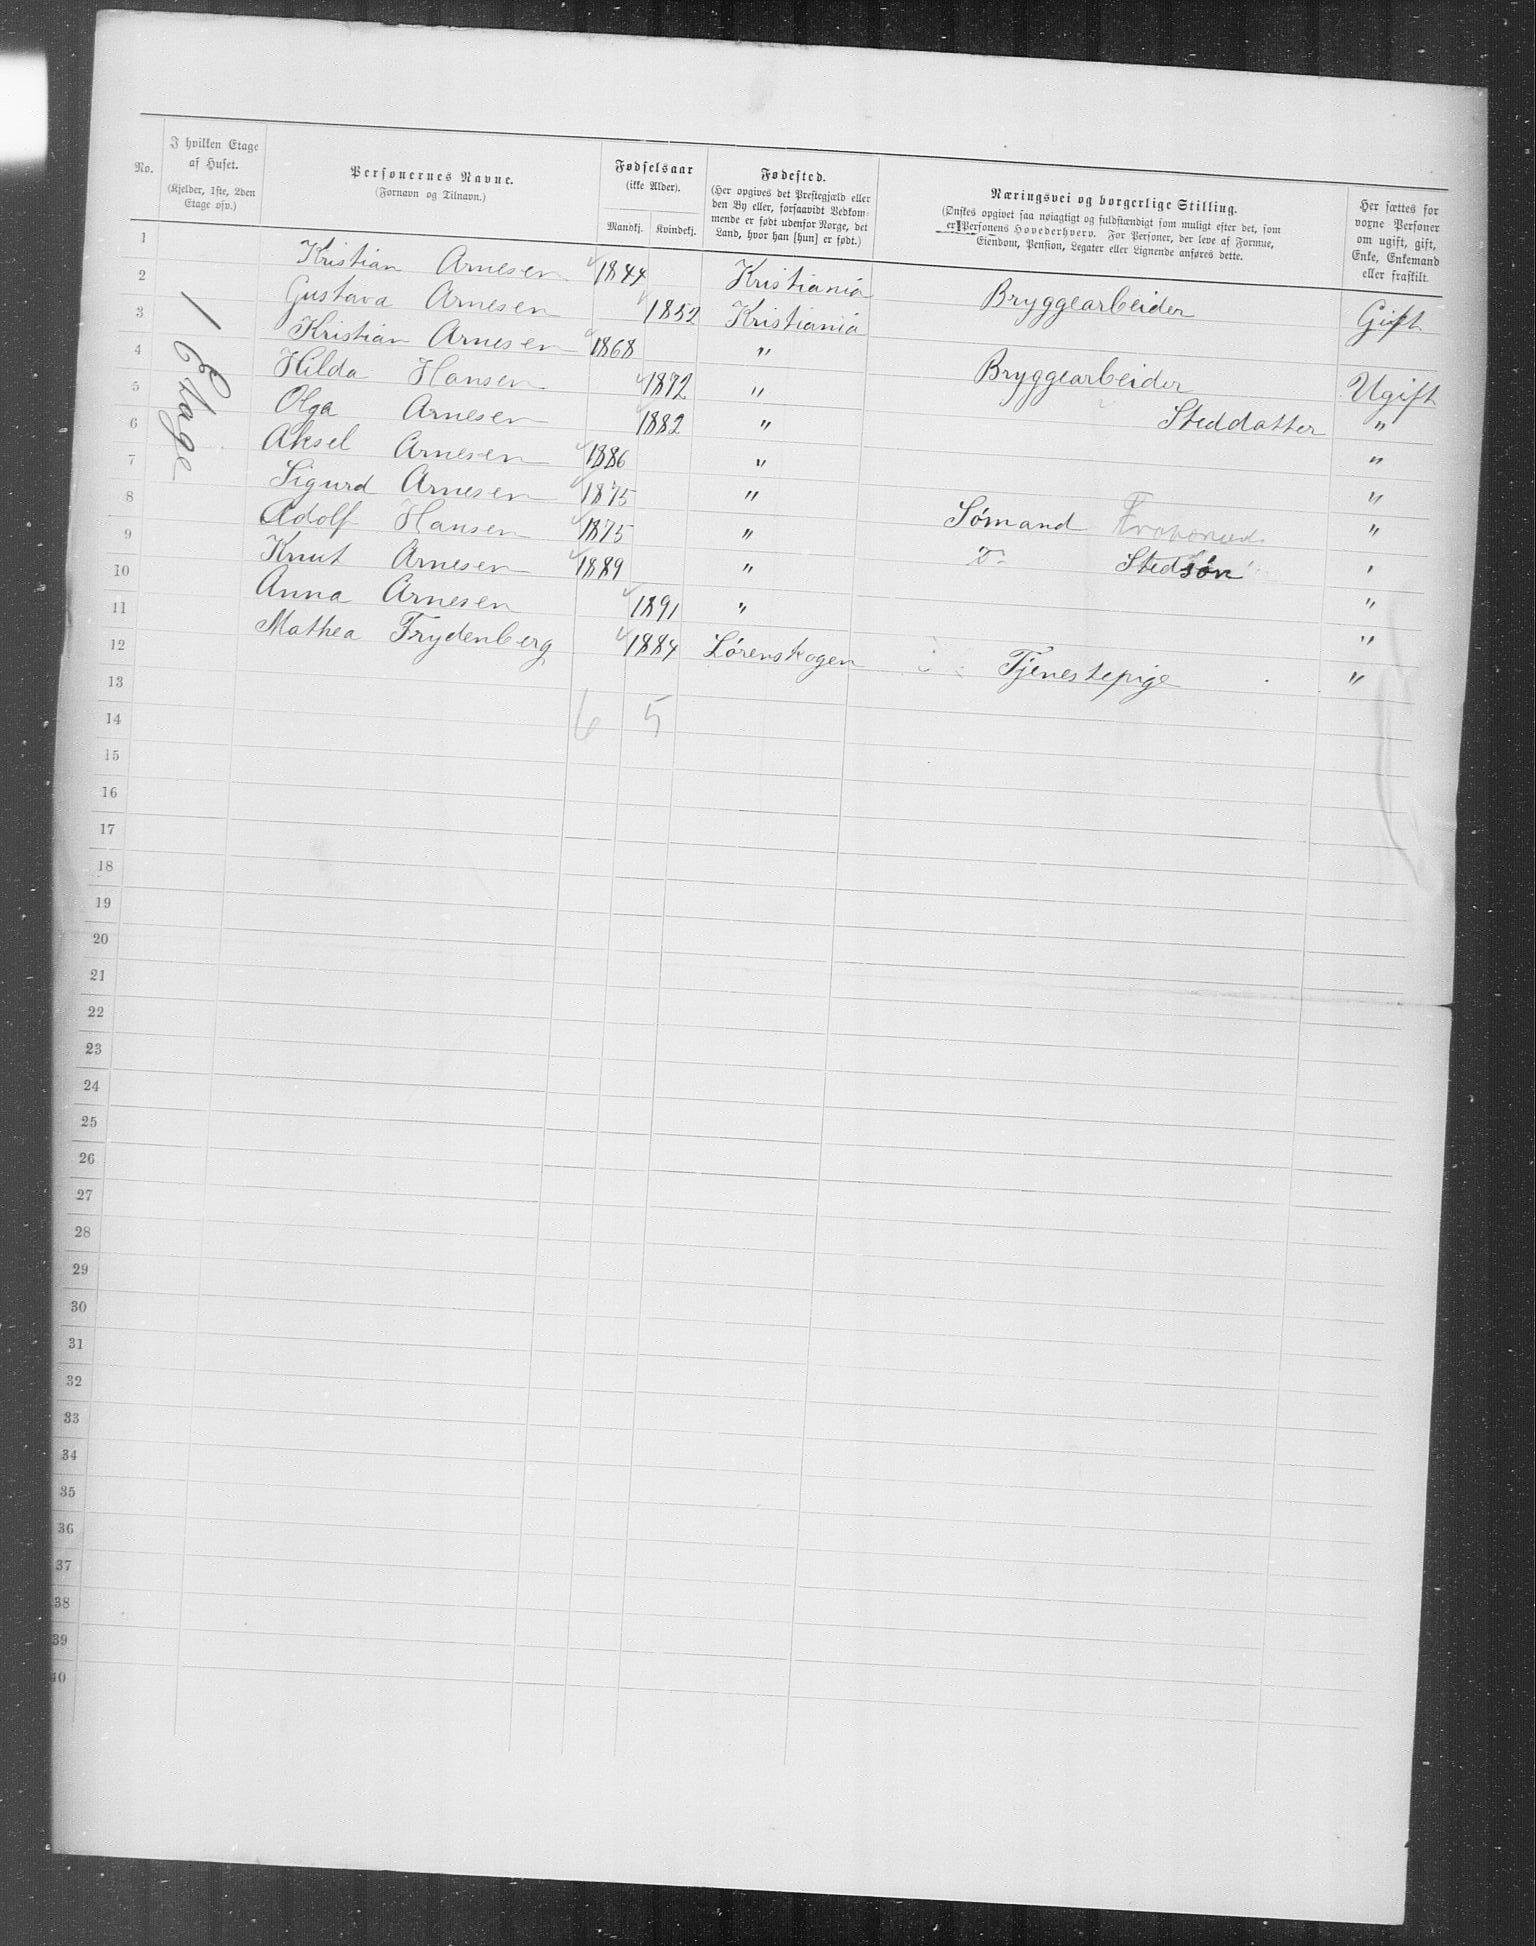 No.
I hvilken Etage af Huset.
(Kjelder, 1ste, 2den Etage osv.)
Personernes Navne.
(Fornavn og Tilnavn.)
Fødselsaar
(ikke Alder).
Mandkj. Kvindekj.
Fødested.
(Her opgives det Prestegjæld eller
den By eller, forsaavidt Vedkom-
mende er født udenfor Norge, det
Land, hvor han [hun] er født.)
Næringsvei og borgerlige Stilling.
(Ønskes opgivet saa nøiagtigt og fuldstændigt som muligt efter det, som
er Personens Hovederhverv. For Personer, der leve af Formue,
Eiendom, Pension, Legater eller Lignende anføres dette.
Her sættes for
voxne Personer
om ugift, gift,
Enke, Enkemand
eller fraskilt.
1 Etage
1 Kristian Arnesen 1844 Kristiania Bryggearbeider Gift
2 Gustava Arnesen 1852 Kristiania
3 Kristian Arnesen 1868 " Bryggearbeider Ugift
4 Hilda Hansen 1872 " Steddatter "
5 Olga Arnesen 1882 " "
6 Aksel Arnesen 1886 " "
7 Sigurd Arnesen 1875 " Sømand "
8 Adolf Hansen 1875 " Do Stedsøn "
9 Knut Arnesen 1889 " "
10 Anna Arnesen 1891 " "
11 Mathea Frydenberg 1884 Lørenskogen Tjenestepige "
12
13 6 5
14
15
16
17
18
19
20
21
22
23
24
25
26
27
28
29
30
31
32
33
34
35
36
37
38
39
40